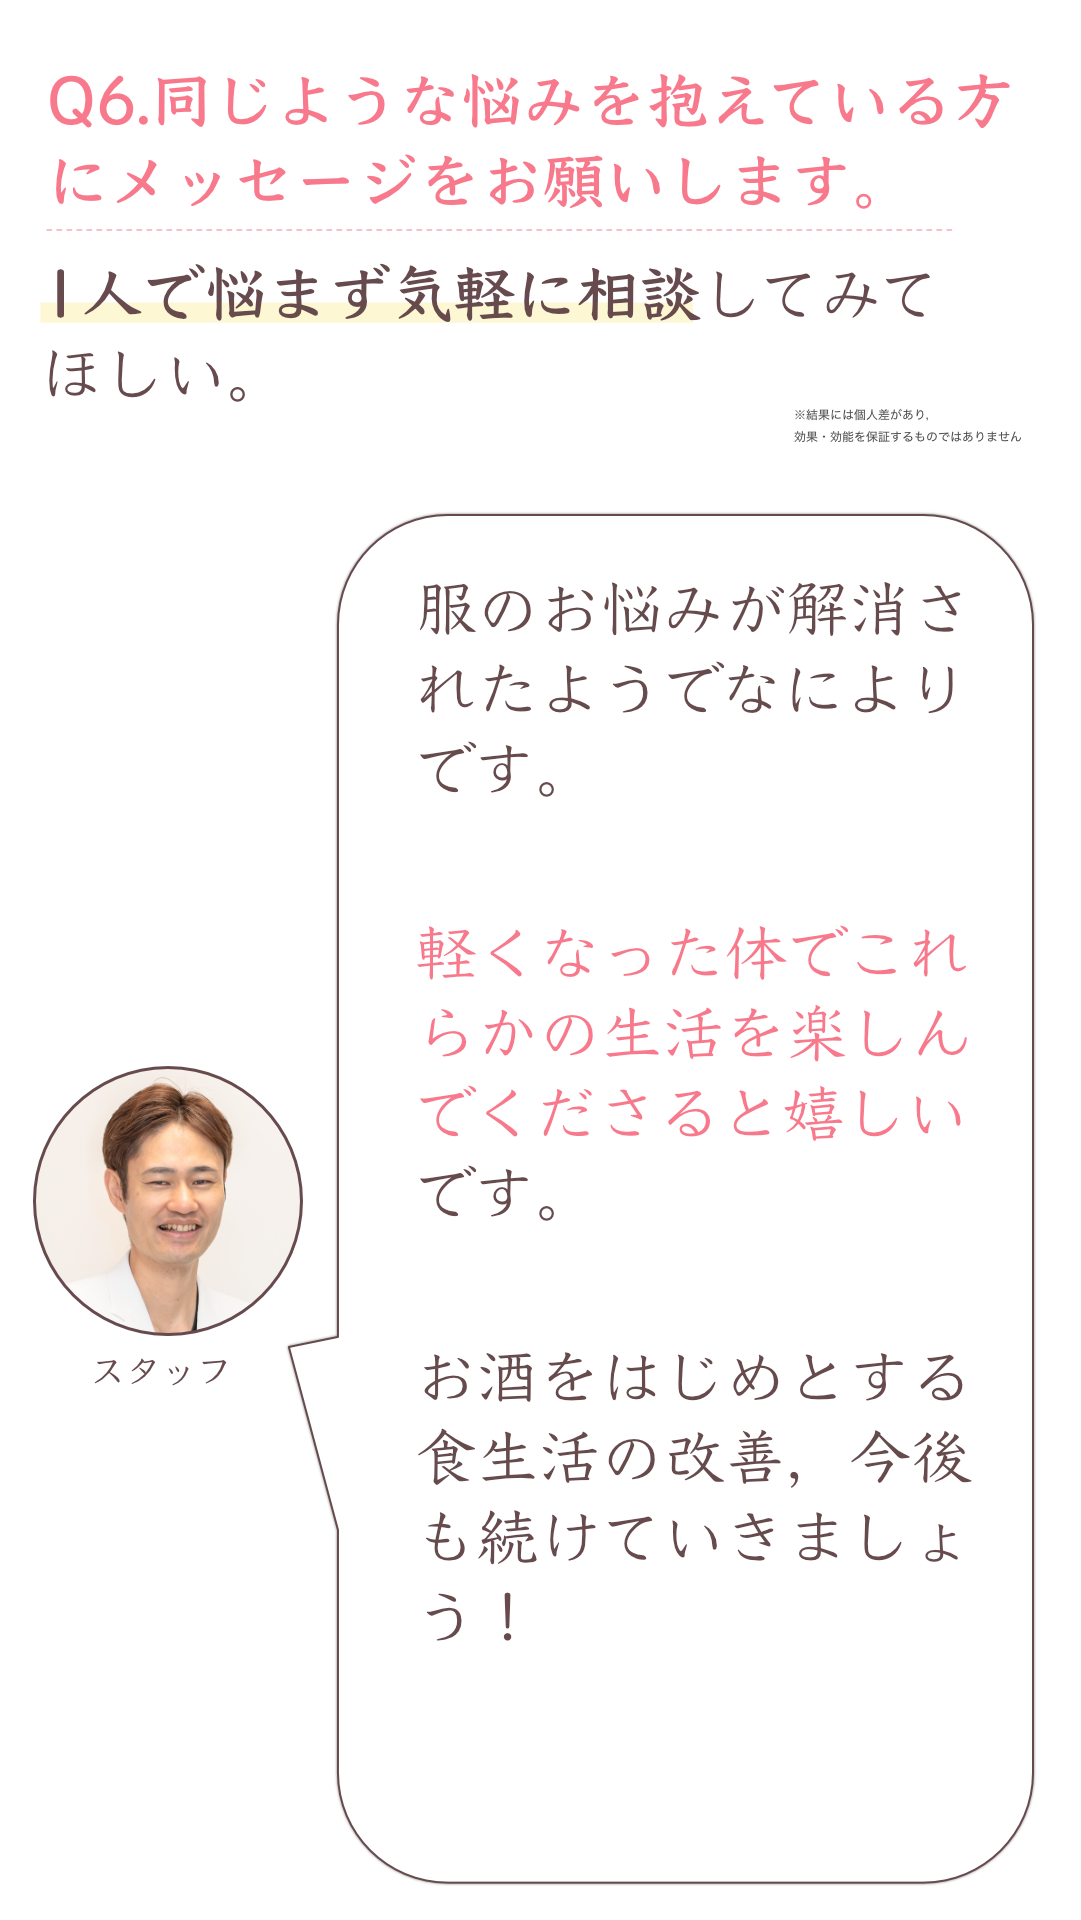 Q6.同じような悩みを抱えている方
にメッセージをお願いします。
1人で悩まず気軽に相談してみて
ほしい。
※結果には個人差があり,
効果・効能を保証するものではありません
服のお悩みが解消さ
れたようでなにより
です。
軽くなった体でこれ
らかの生活を楽しん
でくださると嬉しい
です。
スタッフ
お酒をはじめとする
食生活の改善，今後
も続けていきましょ
う！